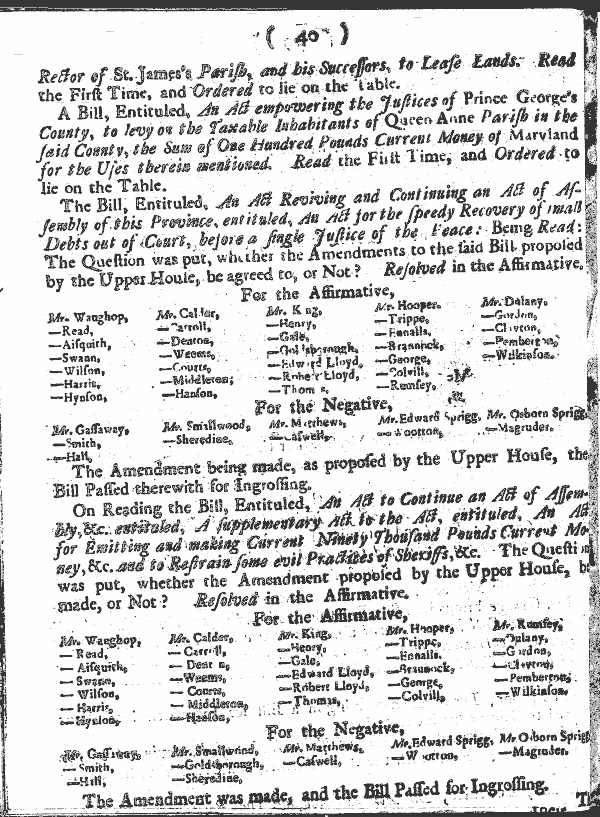 ( 40 )
Rector of St. James's Pariſh, and his Succeſſors, to Leaſe Lands. Read
the Firſt Time, and Ordered to lie on the Table.
A Bill, Entituled, An Act empowering the Juſtices of Prince George's
County, to levy on the Taxable Inhabitants of Queen Anne Pariſh in the
ſaid County, the Sum of One Hundred Pounds Current Money of Maryland
for the Uſes therein mentioned. Read the Firſt Time, and Ordered to
lie on the Table.
The Bill, Entituled, An Act Reviving and Continuing an Act of Aſ-
ſembly of this Province, entituled, An Act for the ſpeedy Recovery of ſmall
Debts out of Court, before a ſingle Juſtice of the Peace: Being Read:
The Queſtion was put, whether the Amendments to the ſaid Bill propoſed
by the Upper Houſe, be agreed to, or Not? Reſolved in the Affirmative.
For the Affirmative,
Mr. Waughop, Mr. Calder, Mr. King, Mr. Hooper, Mr. Dulany,
—Read, —Carroll, —Henry, —Trippe, —Gordon,
—Aiſquith, —Denton, —Gale, —Ennalls, —Clayton,
—Swann, —Weems, —Goldsborough, —Brannock, —Pemberton,
—Wilſon, —Courts, —Edward Lloyd, —George, —Wilkinſon.
—Harris, —Middleton, —Robert Lloyd, —Colvill,
—Hynſon, —Hanſon, —Thomas, —Rumſey,
For the Negative,
Mr. Gaſſaway, Mr. Smallwood, Mr. Matthews, Mr. Edward Sprigg, Mr. Osborn Sprigg,
—Smith, —Sheredine, —Caſwell, —Wootton, —Magruder.
—Hall,
The Amendment being made, as propoſed by the Upper Houſe, the
Bill Paſſed therewith for Ingroſſing.
On Reading the Bill, Entituled, An Act to Continue an Act of Aſſem-
bly, &c. entituled, A ſupplementary Act to the Act, entituled, An Act
for Emitting and making Current Ninety Thouſand Pounds Current Mo-
ney, &c. and to Reſtrain ſome evil Practices of Sheriffs, &c. The Queſtion
was put, whether the Amendment propoſed by the Upper Houſe, be
made, or Not? Reſolved in the Affirmative.
For the Affirmative,
Mr. Waughop, Mr. Calder, Mr. King, Mr. Hooper, Mr. Rumſey,
—Read, —Carroll, —Henry, —Trippe, —Dulany,
—Aiſquith, —Denton, —Gale, —Ennalls, —Gordon,
—Swann, —Weems, —Edward Lloyd, —Brannock, —Clayton,
—Wilſon, —Courts, —Robert Lloyd, —George, —Pemberton,
—Harris, —Middleton, —Thomas, —Colvill, —Wilkinſon.
—Hynſon, —Hanſon,
For the Negative,
Mr. Gaſſaway, Mr. Smallwood, Mr. Matthews, Mr. Edward Sprigg, Mr. Osborn Sprigg,
—Smith, —Goldsborough, —Caſwell, —Wootton, —Magruder.
—Hall, —Sheredine,
The Amendment was made, and the Bill Paſſed for Ingroſſing.